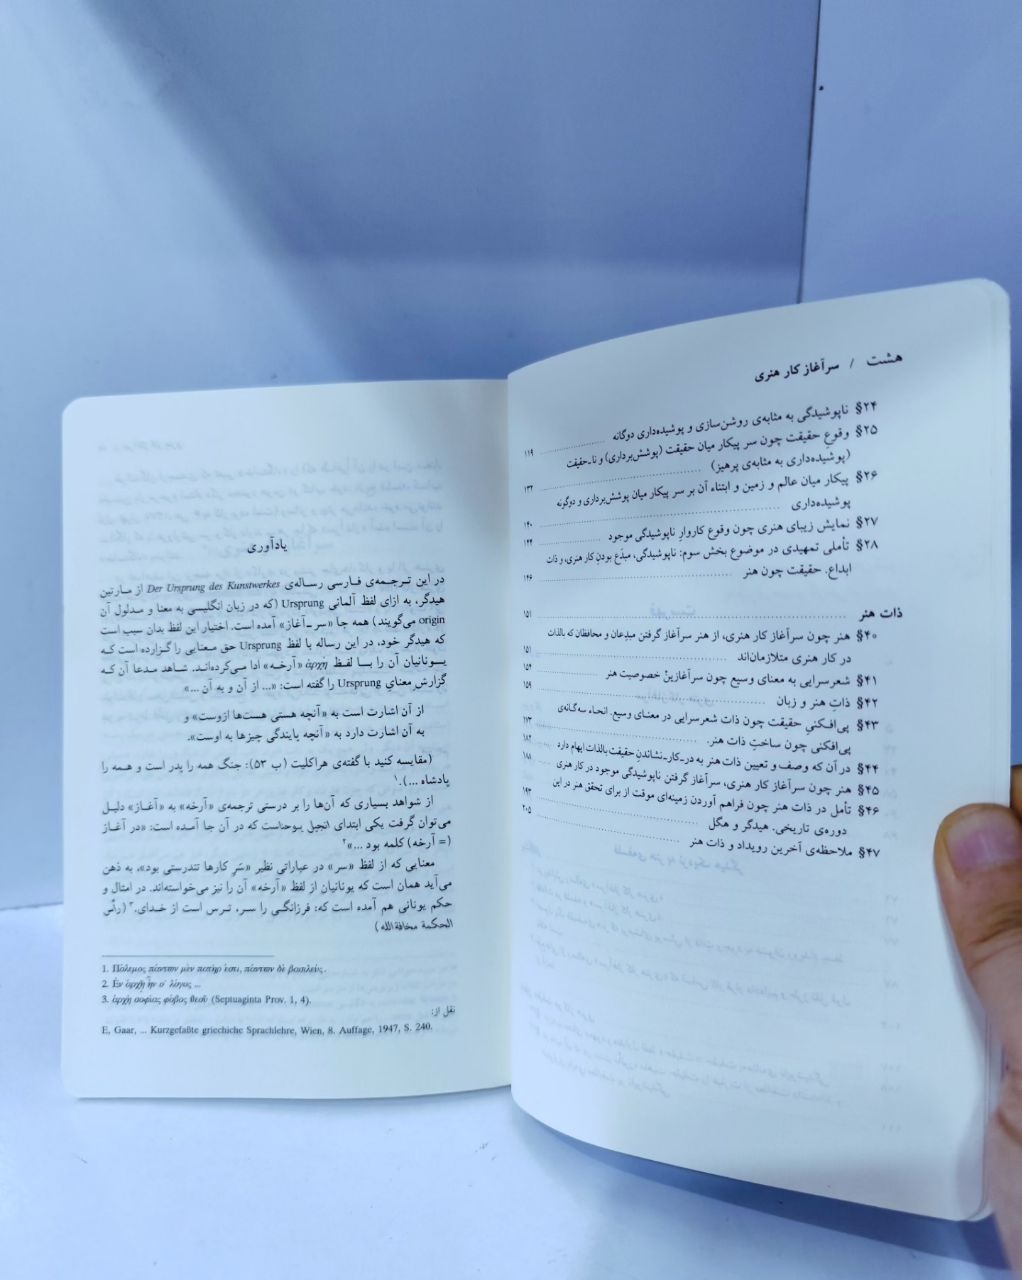 هشت / سرآغاز کار هنری
§۲۴ ناپوشیدگی به مثابه‌ی روشن‌سازی و پوشیده‌داری دوگانه ۱۱۹
§۲۵ وقوع حقیقت چون سر پیکار میان حقیقت (پوشش‌برداری) و نا-حقیقت
(پوشیده‌داری به مثابه‌ی پرهیز) ۱۳۲
§۲۶ پیکار میان عالم و زمین و ابتناء آن بر سر پیکار میان پوشش‌برداری و دوگونه
پوشیده‌داری ۱۴۰
§۲۷ نمایش زیبای هنری چون وقوع کاروارِ ناپوشیدگی موجود ۱۴۴
§۲۸ تأملی تمهیدی در موضوع بخش سوم: ناپوشیدگی، مبدَع بودنِ کار هنری، و ذات
ابداع. حقیقت چون هنر ۱۴۶
ذات هنر ۱۵۱
§۴۰ هنر چون سرآغاز کار هنری، از هنر سرآغاز گرفتن مبدِعان و محافظان که بالذات
در کار هنری متلازمان‌اند ۱۵۱
§۴۱ شعرسرایی به معنای وسیع چون سرآغازینْ خصوصیت هنر ۱۵۴
§۴۲ ذاتِ هنر و زبان ۱۵۹
§۴۳ پی‌افکنیِ حقیقت چون ذات شعرسرایی در معنای وسیع. انحاء سه‌گانه‌ی
پی‌افکنی چون ساختِ ذات هنر. ۱۷۳
§۴۴ در آن که وصف و تعیین ذات هنر به در-کار-نشاندنِ حقیقت بالذات ابهام دارد ۱۸۲
§۴۵ هنر چون سرآغاز کار هنری، سرآغاز گرفتن ناپوشیدگی موجود در کار هنری ۱۸۸
§۴۶ تأمل در ذات هنر چون فراهم آوردن زمینه‌ای موقت از برای تحقق هنر در این
دوره‌ی تاریخی. هیدگر و هگل ۱۹۳
§۴۷ ملاحظه‌ی آخرین رویداد و ذات هنر ۲۰۵
یادآوری
در این ترجمه‌ی فارسی رساله‌ی Der Ursprung des Kunstwerkes از مارتین
هیدگر، به ازای لفظ آلمانی Ursprung (که در زبان انگلیسی به معنا و مدلول آن
origin می‌گویند) همه جا «سر-آغاز» آمده است. اختیار این لفظ بدان سبب است
که هیدگر خود، در این رساله با لفظ Ursprung حق معنایی را گزارده است که
یونانیان آن را با لفظ ἀρχή «آرخه» ادا می‌کرده‌اند. شاهد مدعا آن که
گزارشِ معنایِ Ursprung را گفته است: «... از آن و به آن ...»
از آن اشارت است به «آنچه هستی هست‌ها ازوست» و
به آن اشارت دارد به «آنچه پایندگی چیزها به اوست».
(مقایسه کنید با گفته‌ی هراکلیت (ب ۵۳): جنگ همه را پدر است و همه را
پادشاه ...).۱
از شواهد بسیاری که آن‌ها را بر درستی ترجمه‌ی «آرخه» به «آغاز» دلیل
می‌توان گرفت یکی ابتدای انجیل یوحناست که در آن جا آمده است: «در آغاز
(= آرخه) کلمه بود ...»۲
معنایی که از لفظ «سر» در عباراتی نظیر «سَرِ کارها تندرستی بود»، به ذهن
می‌آید همان است که یونانیان از لفظ «آرخه» آن را نیز می‌خواسته‌اند. در امثال و
حکم یونانی هم آمده است که: فرزانگی را سر، ترس است از خدای.۳ (رأس
الحکمة مخافةالله)
1. Πόλεμος πάντων μὲν πατήρ ἐστι, πάντων δὲ βασιλεύς.
2. Ἐν ἀρχῇ ἦν ὁ λόγος ...
3. ἀρχὴ σοφίας φόβος θεοῦ (Septuaginta Prov. 1, 4).
نقل از:
E. Gaar, ... Kurzgefaßte griechiche Sprachlehre, Wien, 8. Auffage, 1947, S. 240.